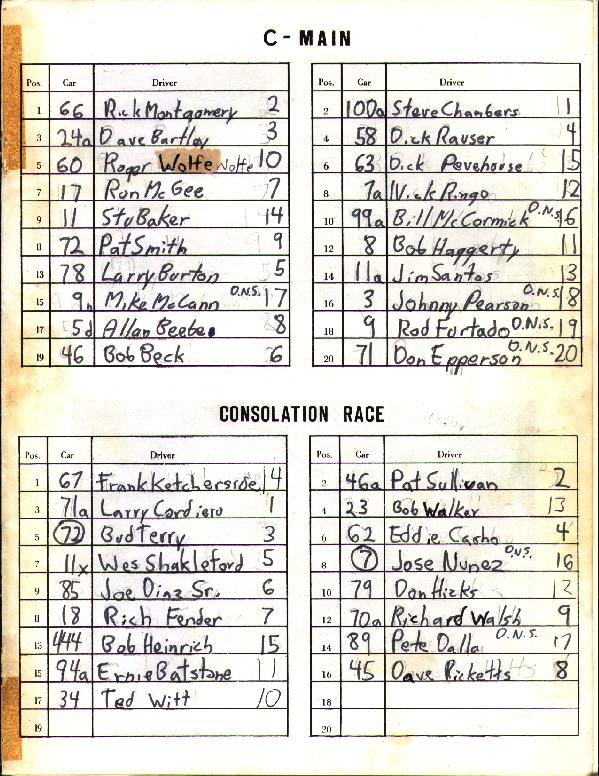 C-MAIN
Pos. Car Driver
1 66 Rick Montgomery 2
3 24a Dave Bartley 3
5 60 Roger Wolfe Nolte 10
7 17 Ron McGee 7
9 11 Stu Baker 14
11 72 Pat Smith 9
13 78 Larry Burton 5
15 9n Mike McCann D.N.S. 17
17 5d Allan Beebe 8
19 46 Bob Beck 6
Pos. Car Driver
2 100a Steve Chambers 1
4 58 Dick Rauser 4
6 63 Dick Pevehouse 15
8 7a Vick Ringo 12
10 99a Bill McCormick D.N.S. 16
12 8 Bob Haggerty 11
14 11a Jim Santos 13
16 3 Johnny Pearson D.N.S. 18
18 9 Rod Furtado D.N.S. 19
20 71 Don Epperson D.N.S. 20
CONSOLATION RACE
Pos. Car Driver
1 67 Frank Ketcherside 14
3 71a Larry Cordiero 1
5 72 Bud Terry 3
7 11x Wes Shakleford 5
9 85 Joe Diaz Sr. 6
11 18 Rich Fender 7
13 444 Bob Heinrich 15
15 94a Ernie Batstone 11
17 34 Ted Witt 10
19
Pos. Car Driver
2 46a Pat Sullivan 2
4 23 Bob Walker 13
6 62 Eddie Casho 4
8 7 Jose Nunez D.N.S. 16
10 79 Don Hicks 12
12 70a Richard Walsh 9
14 89 Pete Dalla D.N.S. 17
16 45 Dave Ricketts 8
18
20